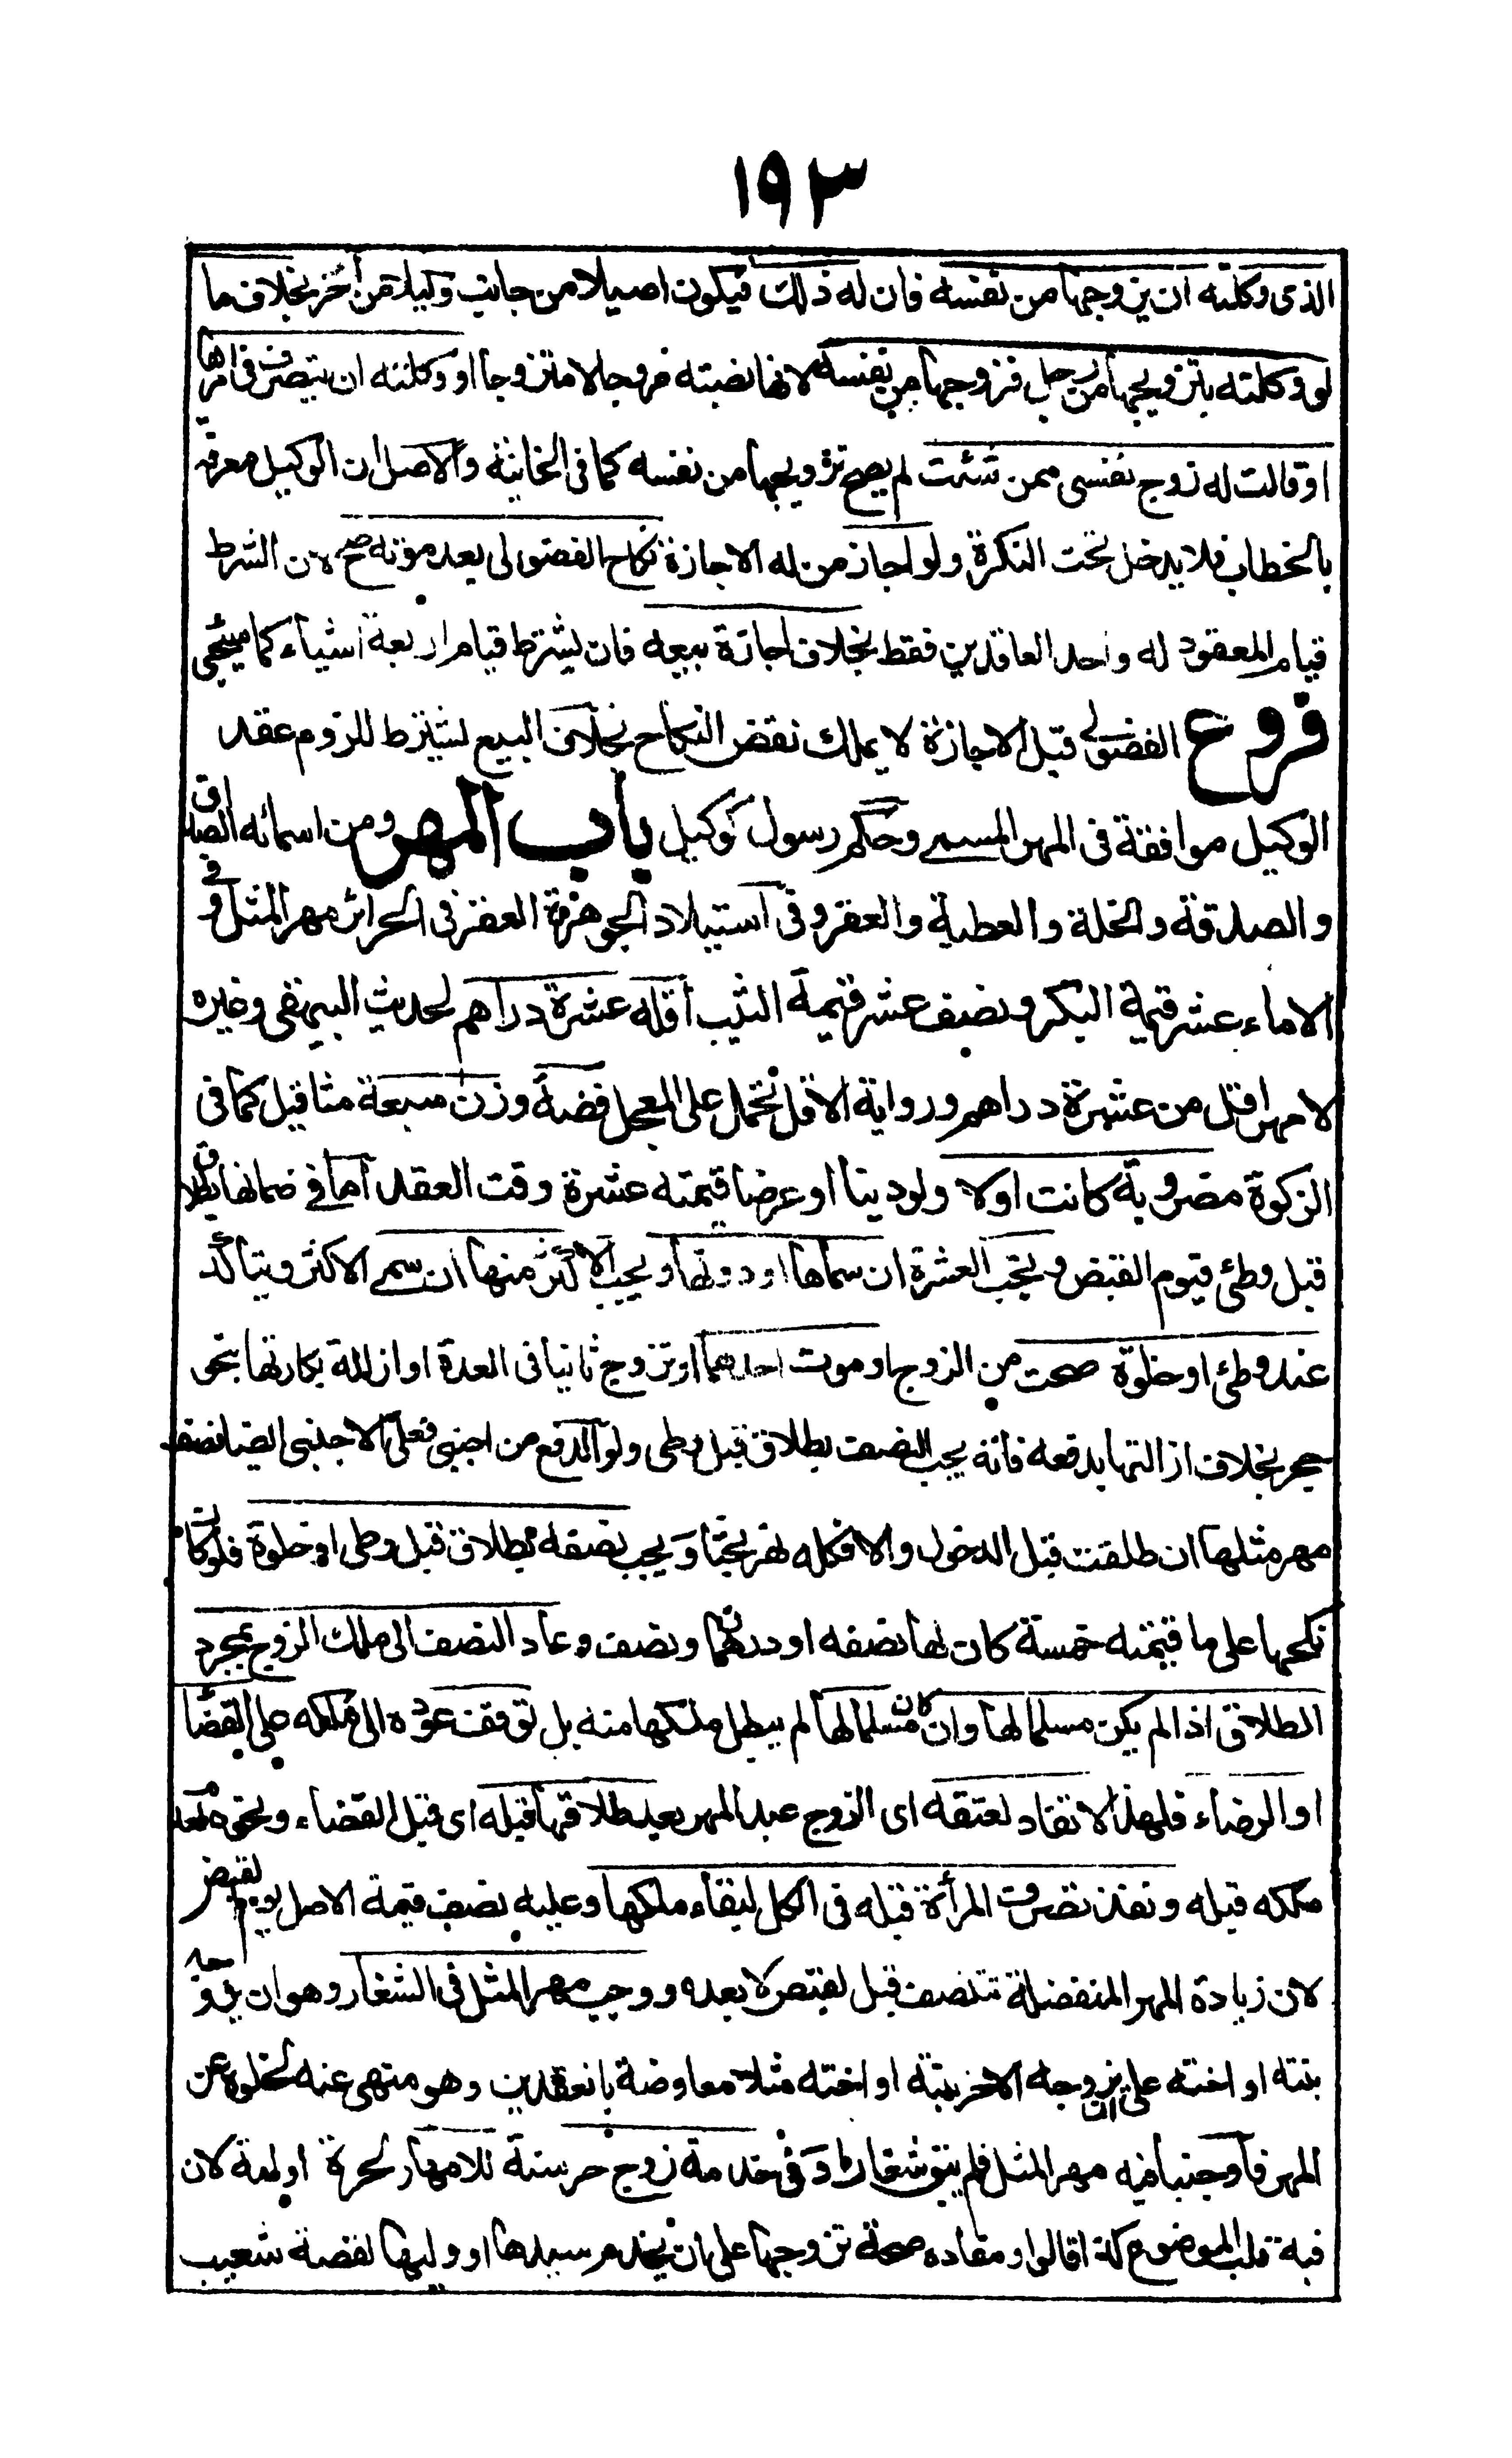 ١٩٣
الذى وكلته ان يزوجها من نفسه فان له ذلك فيكون اصيلا من جانب وكيلا من أخر بخلاف ما
لو وكلته بتزويجها من رجل فزوجها من نفسه لانها نصبته مزوجا لا متزوجا او وكلته ان يتصرف فى امرها
او قالت له زوج نفسى ممن شئت لم يصح تزويجها من نفسه كما فى الخانية والاصل ان الوكيل معرفة
بالخطاب فلا يدخل تحت النكرة ولو اجاز من له الاجازة نكاح الفضولى بعد موته صح لان الشرط
قيام المعقود له واحد العاقدين فقط بخلاف اجازة بيعه فان يشترط قيام اربعة اشياء كما سيجئ
فروع الفضولى قبل الاجازة لا يملك نقض النكاح بخلاف البيع يشترط للزوم عقد
الوكيل موافقة فى المهر المسمى وحكم رسول كوكيل باب المهر ومن اسمائه الصداق
والصدقة والنحلة والعطية والعقر وفى استيلاد الجوهرة العقر فى الحرائر مهر المثل وفى
الاماء عشر قيمة البكر ونصف عشر قيمة الثيب أقله عشرة دراهم لحديث البيهقى وغيره
لا مهر اقل من عشرة دراهم ورواية الاقل تحمل على المعجل فضة وزن سبعة مثاقيل كما فى
الزكوة مضروبة كانت اولا ولو دينا او عرضا قيمته عشرة وقت العقد أما فى ضمانها بطلاق
قبل وطئ فيوم القبض وتجب العشرة ان سماها او دونها ويجب الاكثر منها ان سمى الاكثر ويتأكد
عند وطئ او خلوة صحت من الزوج او موت احدهما او تزوج ثانيا فى العدة او ازالة بكارتها بنحو
حجر بخلاف ازالتها بدفعه فانه يجب النصف بطلاق قبل وطى ولو الدفع من اجنبى فعلى الاجنبى ايضا نصف
مهر مثلها ان طلقت قبل الدخول والا فكله نهر بحثا ويجب نصفه بطلاق قبل وطى او خلوة فلو كان
نكحها على ما قيمته خمسة كان لها نصفه او درهما ونصف وعاد النصف الى ملك الزوج بمجرد
الطلاق اذا لم يكن مسلما لها وان كان مسلما لها لم يبطل ملكها منه بل توقف عوده الى ملكه على القضا
او الرضاء فلهذا لا نفاد لعتقه اى الزوج عبد المهر بعد طلاقها قبله اى قبل القضاء ونحوه لعدم
ملكه قبله ونفذ تصرف المرأة قبله فى الكل لبقاء ملكها وعليه نصف قيمة الاصل يوم القبض
لان زيادة المهر المنفصلة تتنصف قبل لقبض لا بعده ووجب مهر المثل فى الشغار وهو ان يزوجه
بنته او اخته على ان يزوجه الاخر بنته او اخته مثلا معاوضة بالعقدين وهو منهى عنه لخلوه عن
المهر فاوجبنا فيه مهر المثل فلم يبق شغارا وفى خدمة زوج حر سنة للامهار لحرة او امة لان
فيه قلب الموضوع كذا قالوا ومفاده صحة تزوجها على ان يخدم سيدها او وليها لقصة شعيب